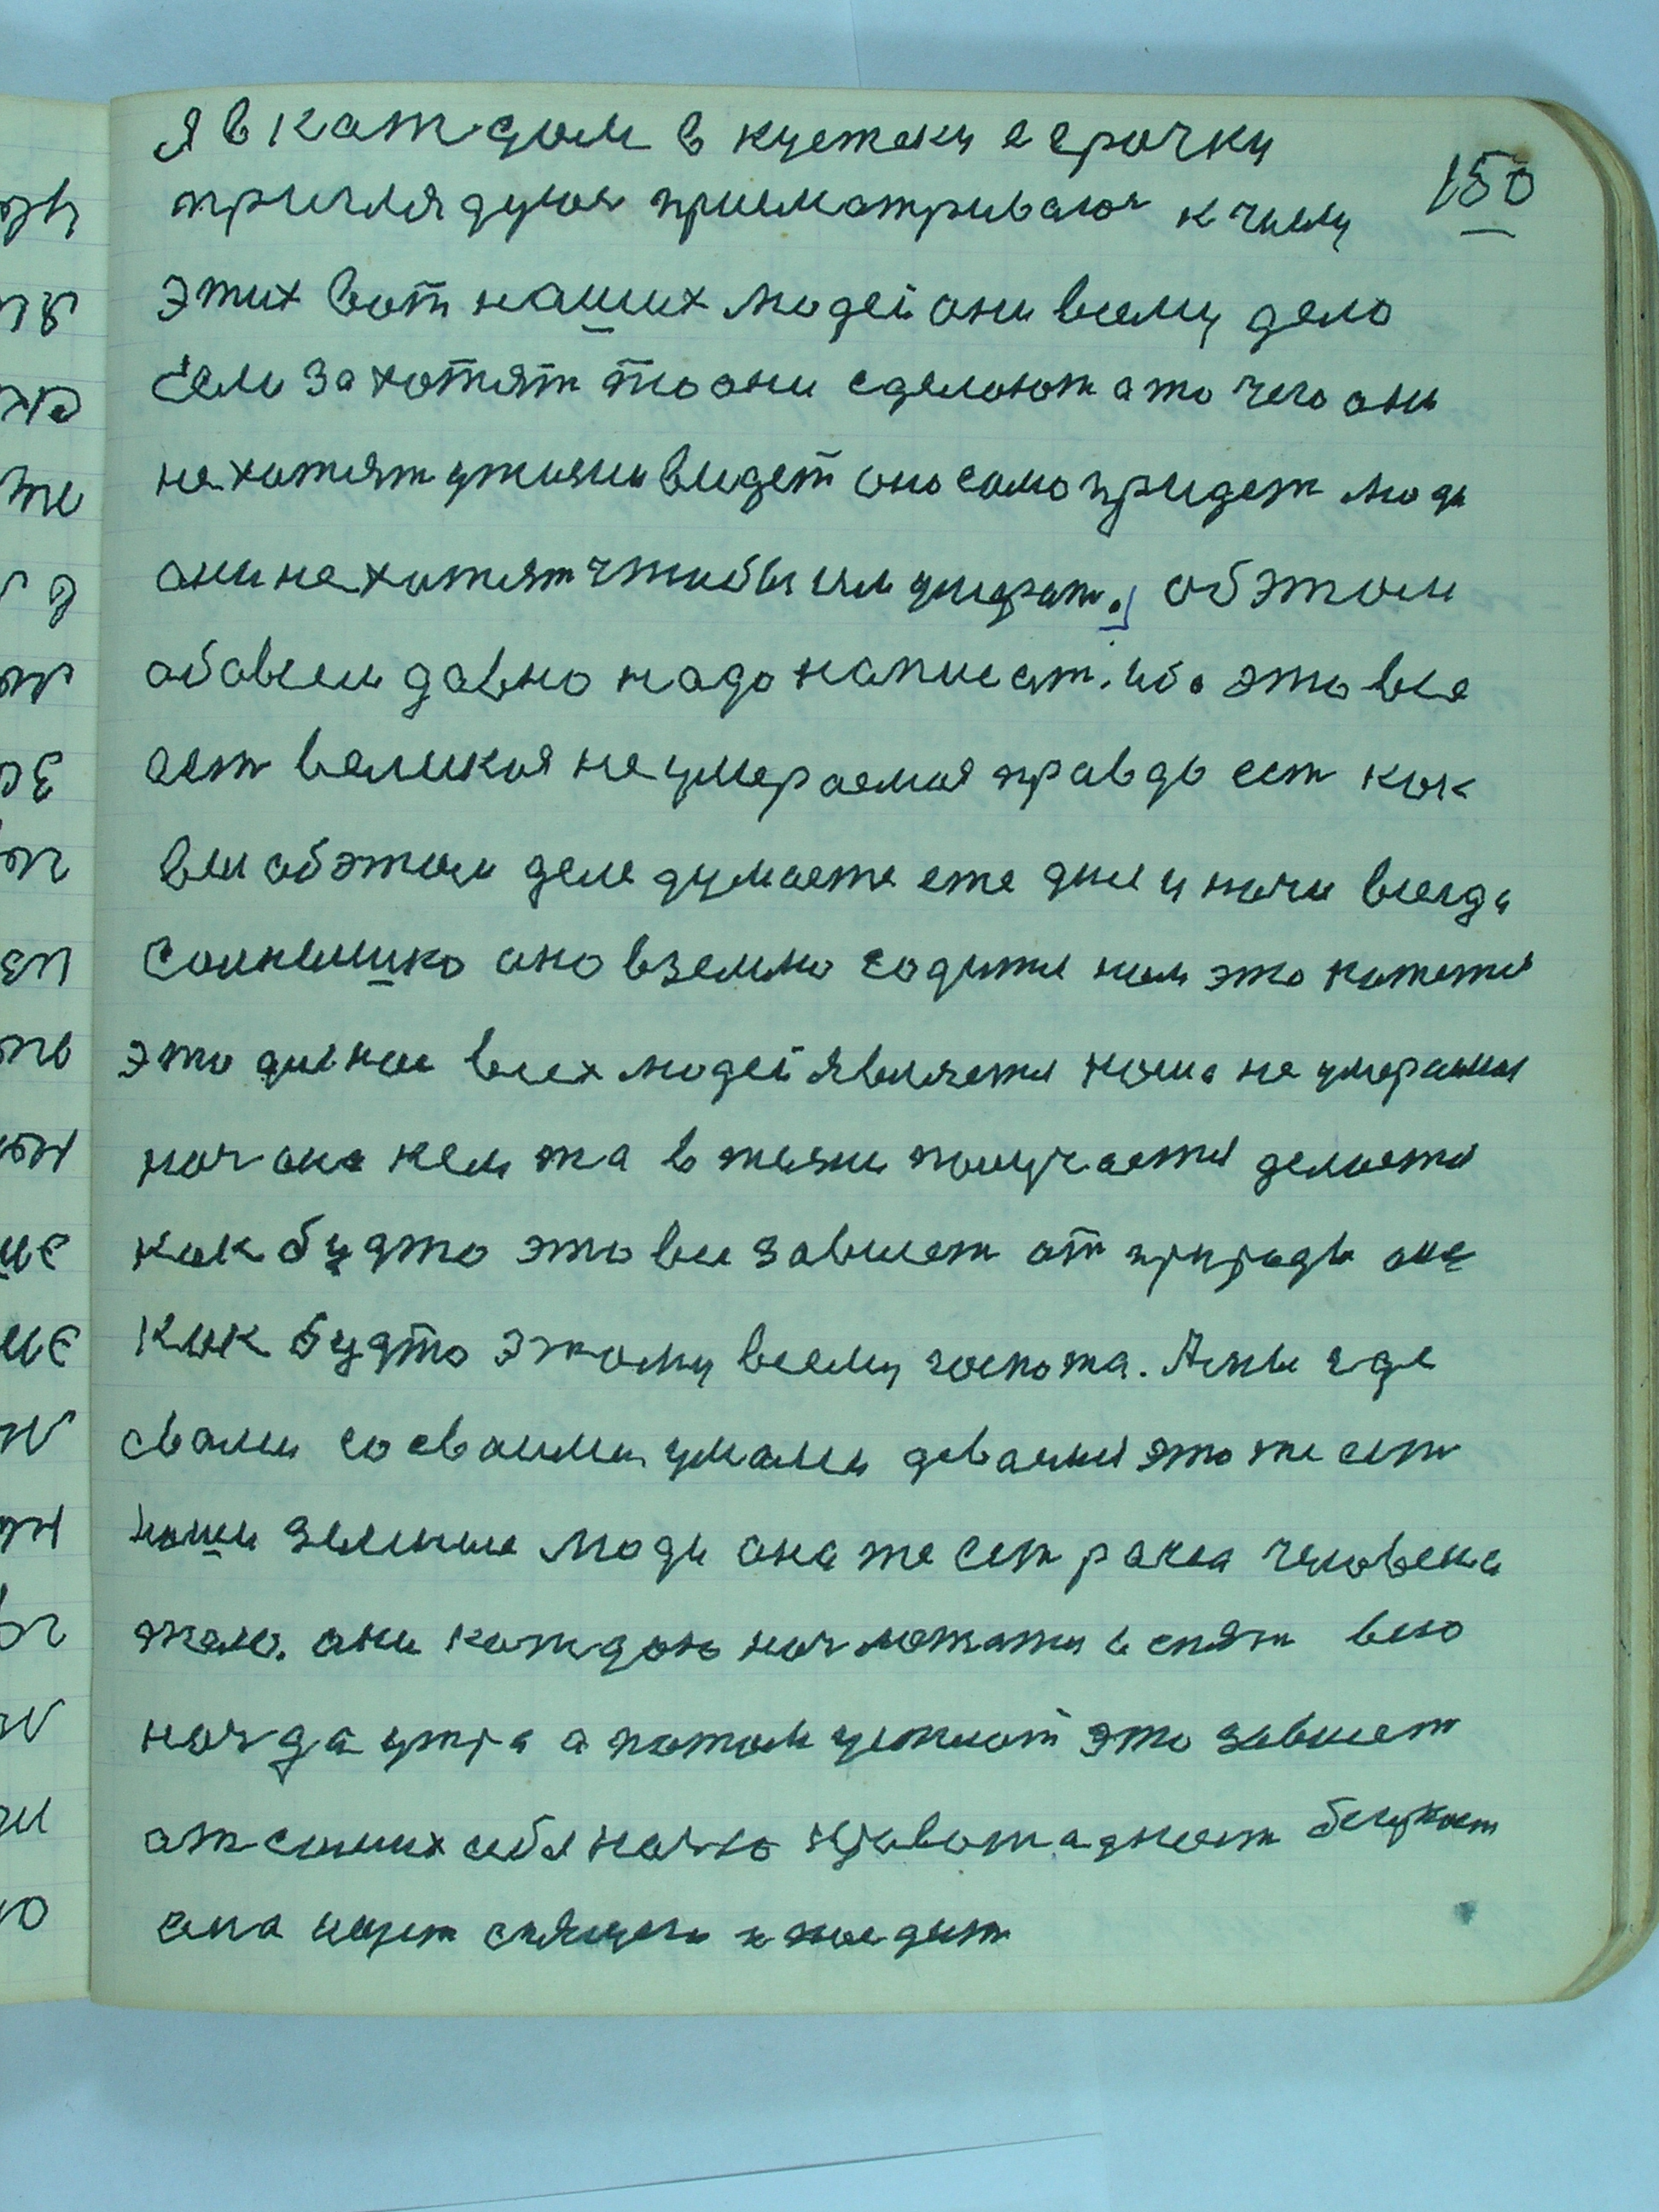 я в каждом в кустеку егрочку
150
приглядуюя присматриваюя к чиму
этих вот наших людей они всему дело
Если захотят то они сделоют а то чего они
не хотят ужизни видет оно само придет люди
они не хотят чтобы им умерат. об этом
обавсем давно надо написат. ибо это все
ест великоя не умераемоя правда ест как
вы обэтом деле думаете еже дни и ночи всегда
Солнышко оно вземлю содитя нам это кажетя
это дивное всех людей являетя наша не умераимоя
ноч она кем жа в жизни получаетя делаетя
как будто это все зависет от природы она
как будто этому всему госпожа. А мы где
свами со своими умами деваемя это же ест
наши земные люди она же ест раса человека
тело. они каждою ноч ложатя и спят всю
ноч да утра а потом устают это зависет
от самих себя ночью кровожадност бегукает
она ищет спящего и находит